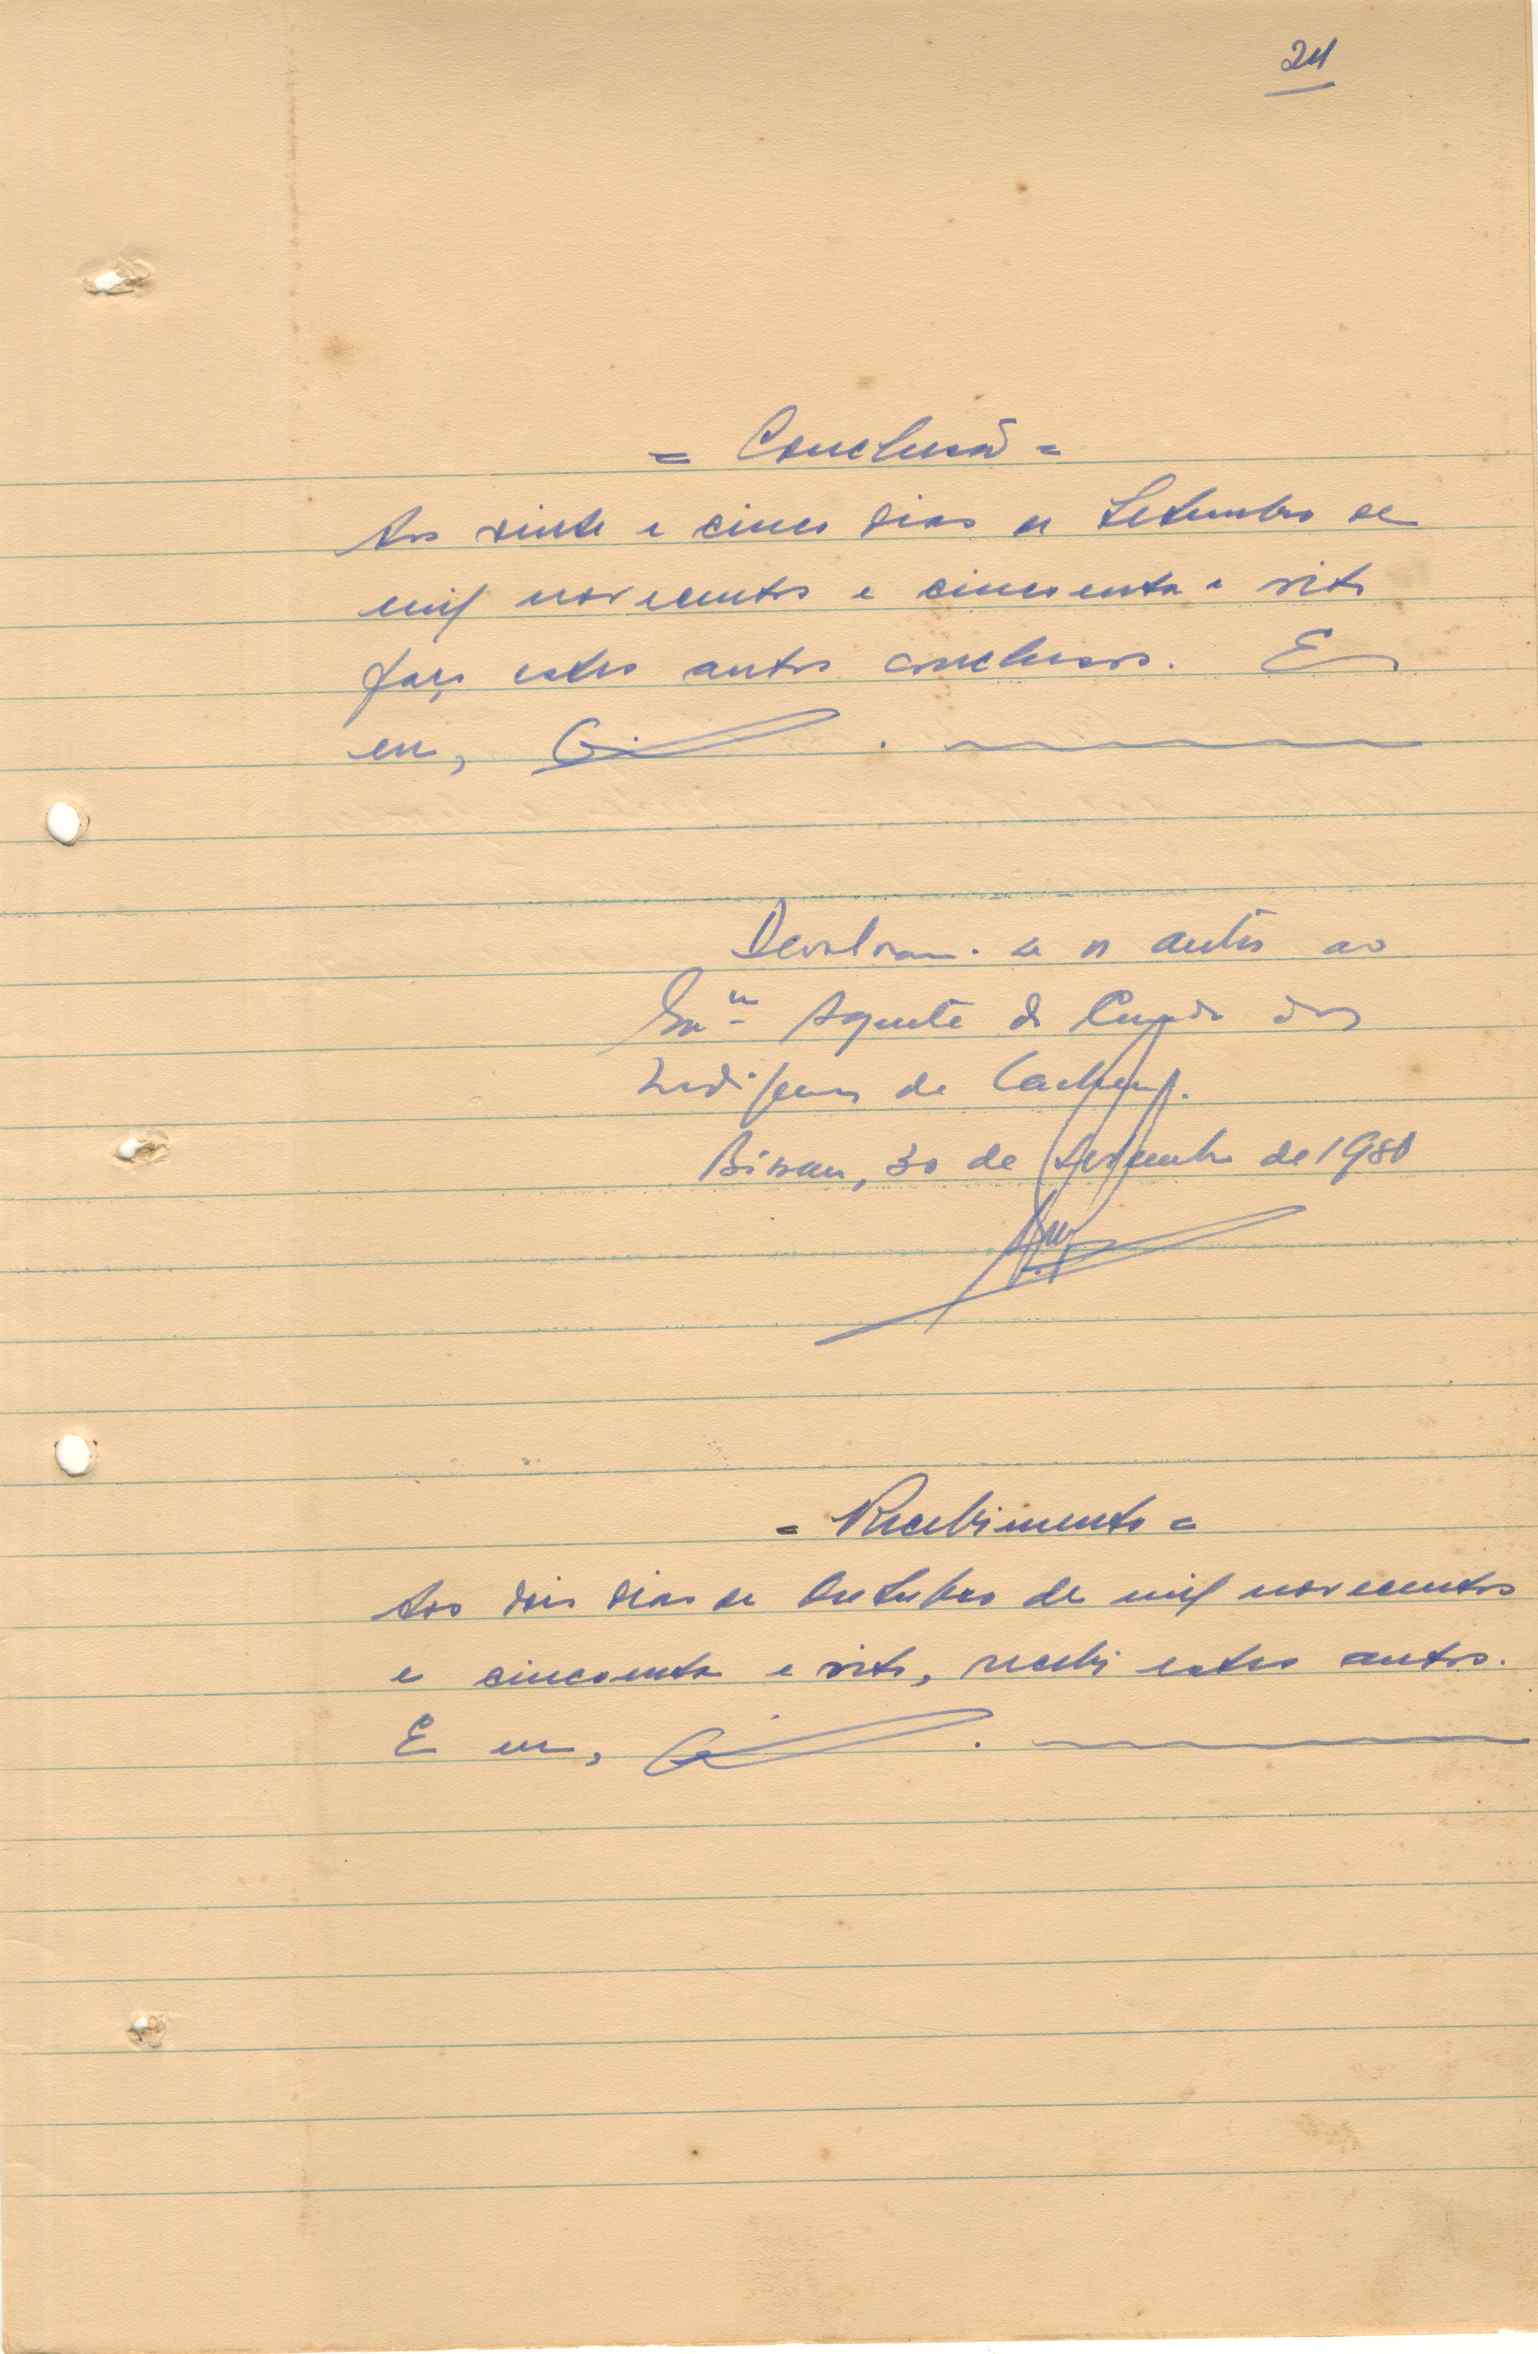 24
= Conclusão =
Aos vinte e cinco dias de Setembro de
mil novecentos e cincoenta e oito
faço estes autos conclusos. E
eu,
Devolvam-se os autos ao
Exmº Agente do Curador dos
Indígenas de Cacheu.
Bissau, 30 de Setembro de 1958
= Recebimento =
Aos dois dias de Outubro de mil novecentos
e cincoenta e oito, recebi estes autos.
E eu,